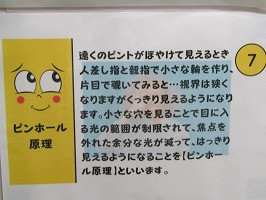 遠くのピントがぼやけて見えるとき
人差し指と親指で小さな輪を作り、
片目で覗いてみると…視界は狭く
なりますがくっきり見えるようになり
ます。小さな穴を見ることで目に入
る光の範囲が制限されて、焦点を
外れた余分な光が減って、はっきり
見えるようになることを【ピンホー
ル原理】といいます。
7
ピンホール
原理